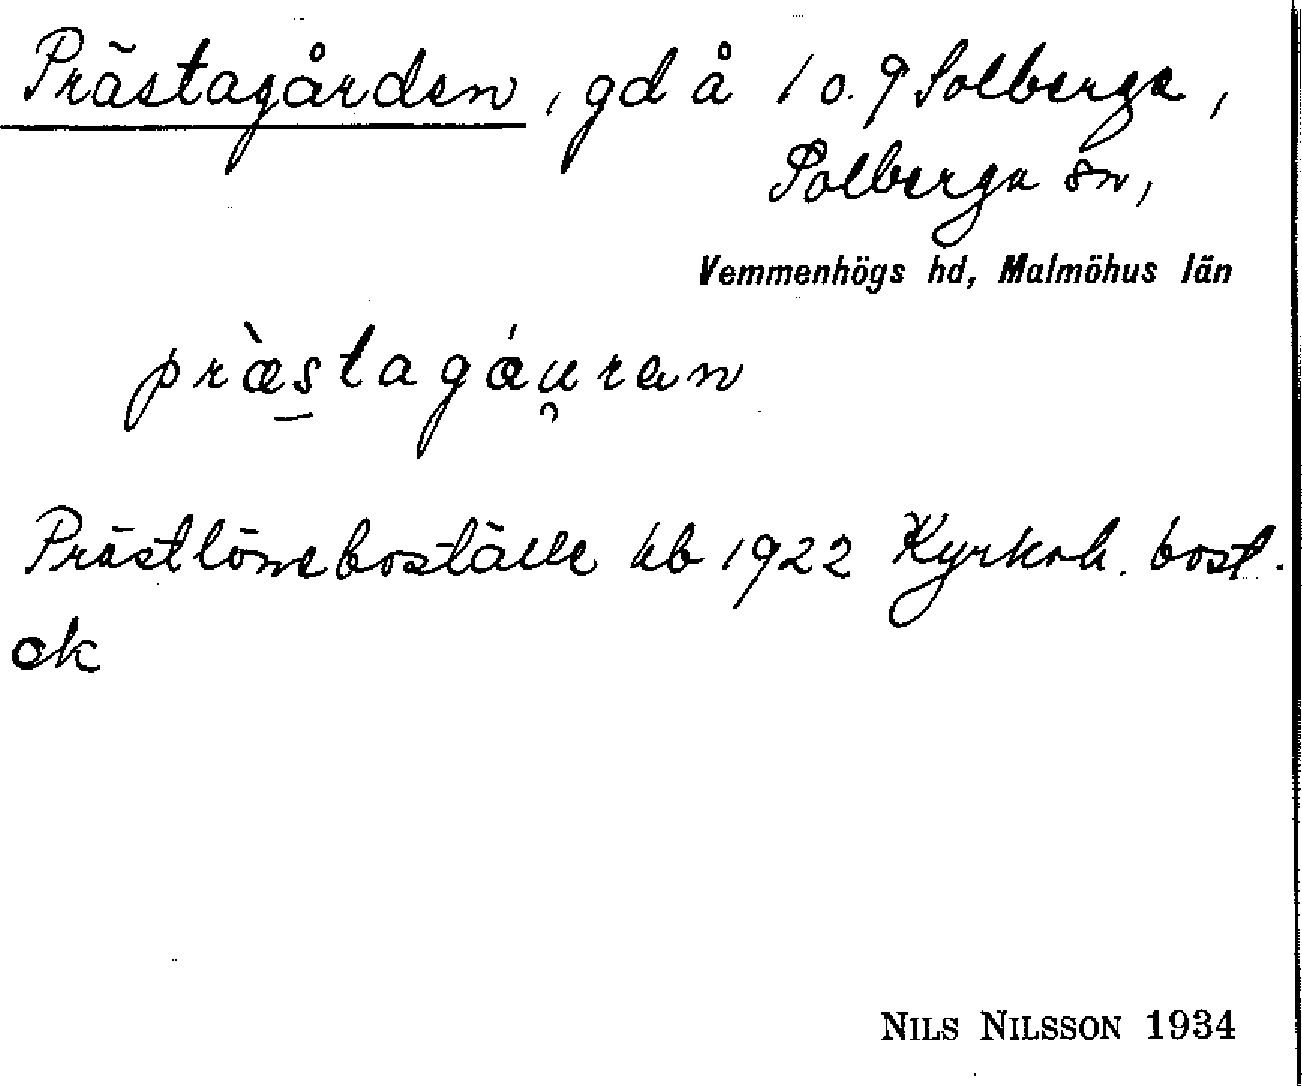 Prästagården, gd å 1 o. 9 Solberga,
Solberga sn,
Vemmenhögs hd, Malmöhus län
præ̀stagáu̯ran
Prästlöneboställe kb 1922 Kyrkoh. bost.
ek
NILS NILSSON 1934